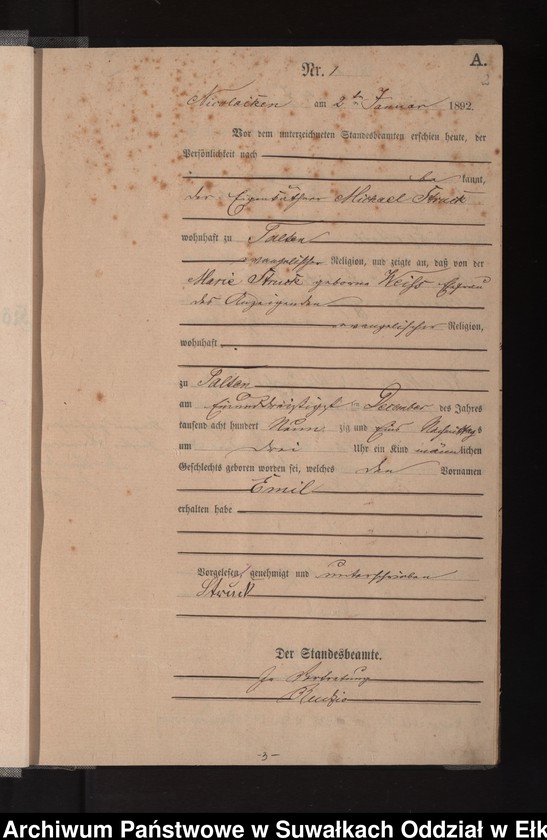 A.
2
Nr. 1
Nicolaiken am 2ten Januar 1892.
Vor dem unterzeichneten Standesbeamten erschien heute, der
Persönlichkeit nach
be kannt,
der Eigenkäthner Michael Struck
wohnhaft zu Talten
evangelischer Religion, und zeigte an, daß von der
Marie Struck geborne Weiß Ehefrau
des Anzeigenden
evangelischer Religion,
wohnhaft
zu Talten
am Einunddreißigst en December des Jahres
tausend acht hundert Neun zig und Eins Nachmittags
um drei Uhr ein Kind männlichen
Geschlechts geboren worden sei, welches den Vornamen
Emil
erhalten habe
Vorgelesen, genehmigt und unterschrieben
Struck
Der Standesbeamte.
In Vertretung
-3-
Archiwum Państwowe w Suwałkach Oddział w Ełk